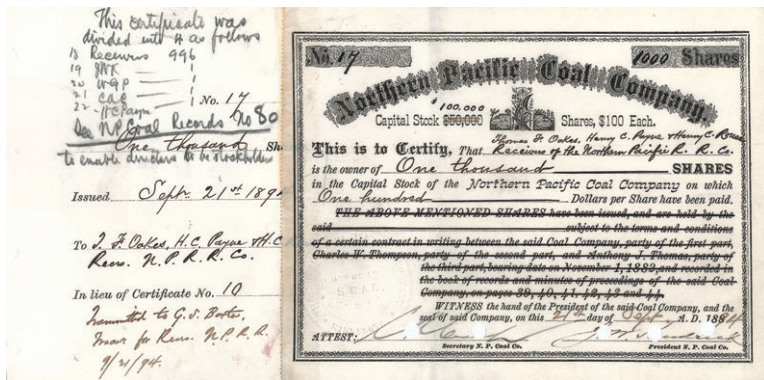 This certificate was
divided into 4 as follows
18 Receivers 996
19 JNK 1
20 WGP 1
21 CAC 1
22 HC Payne 1
No. 17
See NP Coal Records No 80
One thousand Sh
to enable directors to be stockholders
Issued Sept. 21st 189
To T. F. Oakes, H.C. Payne & H.C
Recrs. N. P. R. R. Co.
In lieu of Certificate No. 10
Transmitted to G. S.
for Recrs. N. P. R. R.
9/21/94.
No. 17
1000 Shares
Northern Pacific Coal Company.
$100,000
Capital Stock $50,000 Shares, $100 Each.
Thomas F. Oakes, Henry C. Payne & Henry C. Rouse
This is to Certify, That Receivers of the Northern Pacific R. R. Co.
is the owner of One thousand SHARES
in the Capital Stock of the Northern Pacific Coal Company on which
One hundred Dollars per Share have been paid.
THE ABOVE MENTIONED SHARES have been issued, and are held by the
said subject to the terms and conditions
of a certain contract in writing between the said Coal Company, party of the first part,
Charles W. Thompson, party of the second part, and Anthony J. Thomas, party of
the third part, bearing date on November 1, 1882, and recorded in
the book of records and minutes of proceedings of the said Coal
Company, on pages 39, 40, 41, 42, 43 and 44.
WITNESS the hand of the President of the said Coal Company, and the
seal of said Company, on this 21st day of Sept. A. D. 1894
ATTEST:
Secretary N. P. Coal Co.
President N. P. Coal Co.
SEAL